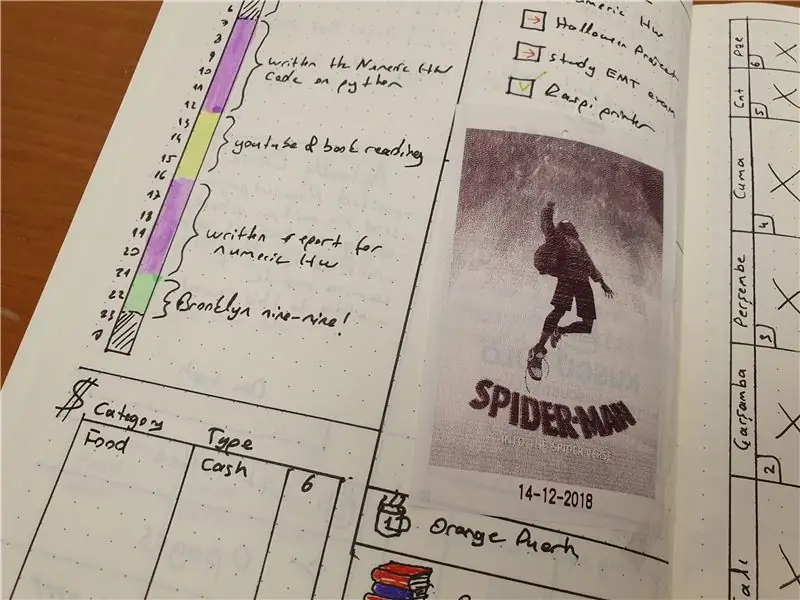 6
7
8
9
10
11
12
13
14
15
16
17
18
19
20
21
22
23
0
written the Numeric HW
code on python
youtube & book reading
written report for
numeric HW
Brooklyn nine-nine!
$ Category Type
Food Cash 6
numeric HW
Halloween Project
study EMT exam
Raspi printer
SPIDER-MAN
INTO THE SPIDER-VERSE
14-12-2018
1 Orange
Pze
6
Cnt
5
Cuma
4
Perşembe
3
Çarşamba
2